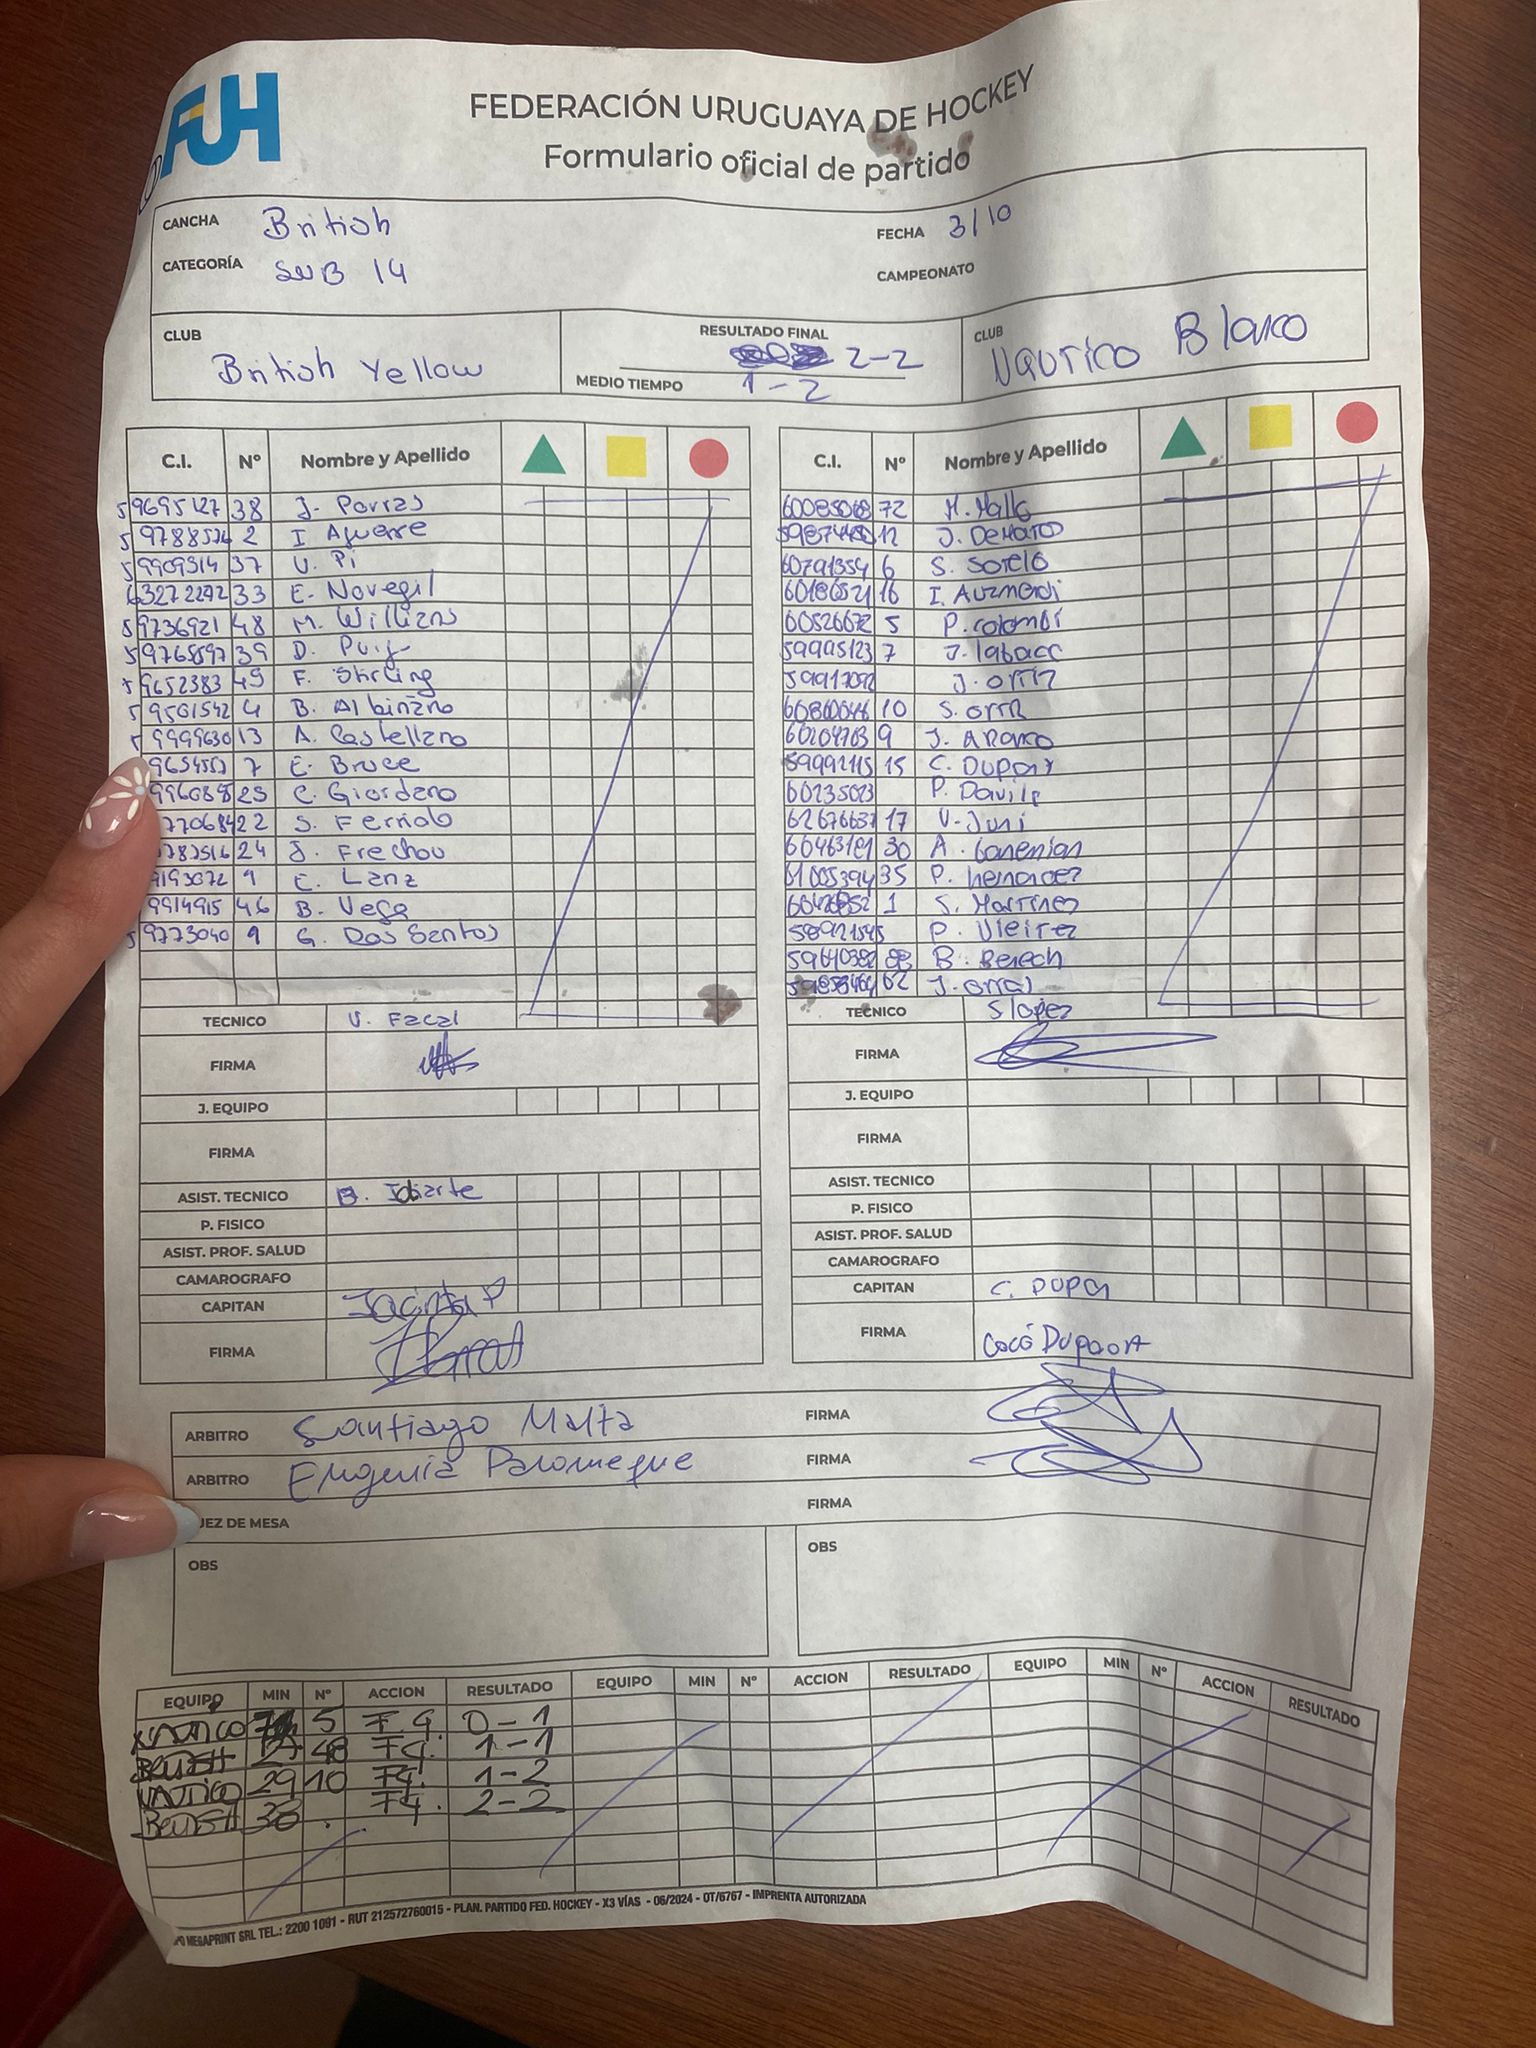 FUH
FEDERACIÓN URUGUAYA DE HOCKEY
Formulario oficial de partido
CANCHA British FECHA 3/10
CATEGORÍA SUB 14 CAMPEONATO
CLUB British Yellow
RESULTADO FINAL 2-2
MEDIO TIEMPO 1-2
CLUB Nautico Blanco
C.I. Nº Nombre y Apellido
59695127 38 J. Porras
59788574 2 I Aguerre
59909314 37 V. Pi
63272272 33 E. Novegil
59736921 48 M. Williams
59765897 39 D. Puig
59652383 49 F. Stirling
59501542 4 B. Albinano
59999630 13 A. Castellano
9654557 7 E. Bruce
996089 25 C. Giordano
770684 22 S. Ferriolo
787516 24 J. Frechou
9193072 9 C. Lanz
9914915 46 B. Vega
59773040 9 G. Dos Santos
TECNICO V. Facal
FIRMA
J. EQUIPO
FIRMA
ASIST. TECNICO B. Idiarte
P. FISICO
ASIST. PROF. SALUD
CAMAROGRAFO
CAPITAN Jacinta P
FIRMA
C.I. Nº Nombre y Apellido
72 M. Mallo
12 J. DeMatos
60791354 6 S. Sotelo
60186521 16 I. Auzmendi
60526672 5 P. Colombí
59995123 7
J. Ortiz
10 S. Ortiz
60204703 9
59992115 15 C. Dupont
60235023 P. Davila
62676637 17 V. Juni
30 A.
61005394 35 P. Hernandez
1 S. Martinez
P. Vieirez
88 B. Berech
62 J. Orral
TECNICO S Lopez
FIRMA
J. EQUIPO
FIRMA
ASIST. TECNICO
P. FISICO
ASIST. PROF. SALUD
CAMAROGRAFO
CAPITAN C. Dupon
FIRMA Cocó Dupont
ARBITRO Santiago Malta FIRMA
ARBITRO Eugenia Palomeque FIRMA
JEZ DE MESA FIRMA
OBS
OBS
EQUIPO MIN Nº ACCION RESULTADO EQUIPO MIN Nº ACCION RESULTADO EQUIPO MIN Nº ACCION RESULTADO
NAUTICO 5 F.G. 0-1
BRITISH 48 FG. 1-1
NAUTICO 29 10 FG. 1-2
BRITISH 36 . FG. 2-2
MEGAPRINT SRL TEL.: 2200 1091 - RUT 212572760015 - PLAN. PARTIDO FED. HOCKEY - X3 VÍAS - 06/2024 - OT/6767 - IMPRENTA AUTORIZADA